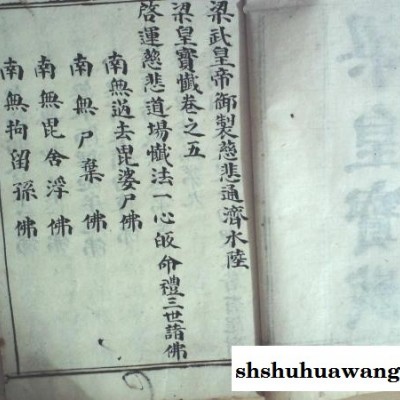 梁武皇帝御製慈悲通濟水陸
梁皇寶懺卷之五
啓運慈悲道場懺法一心皈命禮三世諸佛
南無過去毘婆尸佛
南無尸棄佛
南無毘舍浮佛
南無拘留孫佛
梁皇寶懺
shshuhuawang